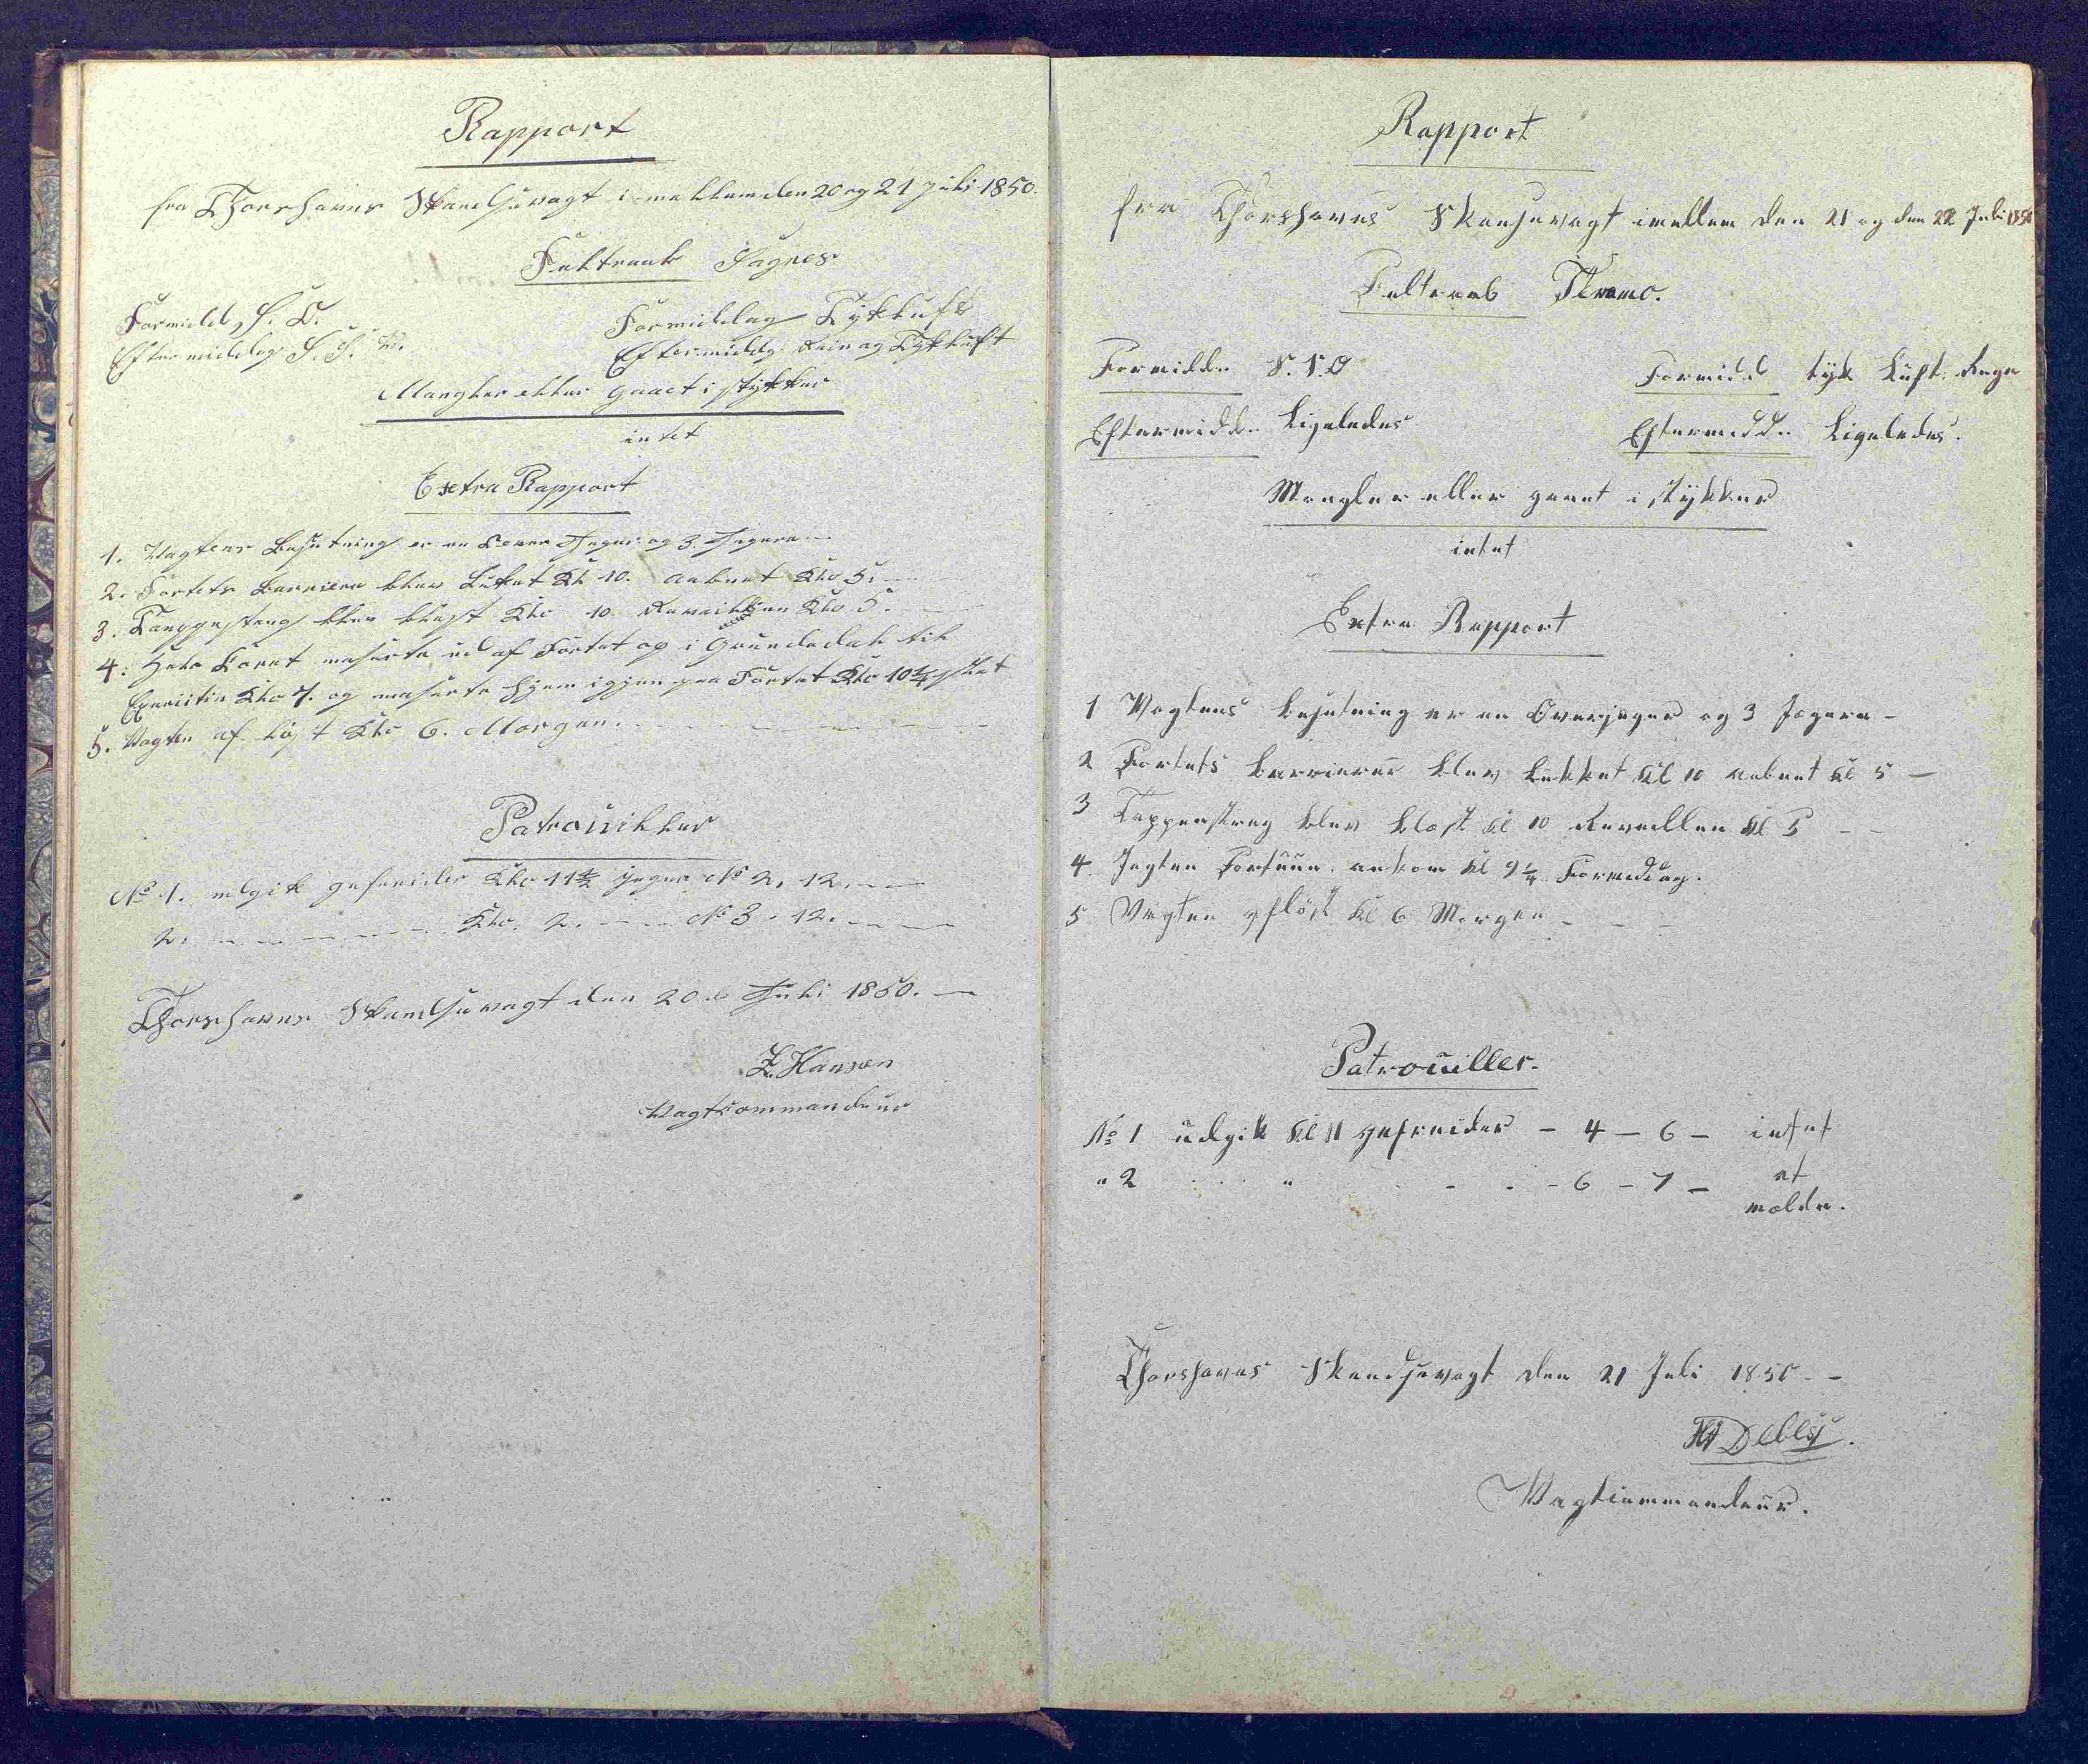 Rapport
fra Thorshavns Skandsevagt imellem den 20 og 21 Juli 1850.
Feltraab Sagnes
Formidd, S. O.
Eftermiddag S. S. W.
Formiddag Tykluft
Eftermiddg. Rein og Tykluft
Mangler eller gaaet i stykker
intet
Extra Rapport
1. Vagtens Besetning er en Over Jeger og 3 Jegere
2. Fortets Barriere blev Luket Kl 10. aabnet Klo 5.
3. Tappenstreng blev blæst Klo 10. Reveillien Klo 5.
4. Hele Koret maserte ud af Fortet op i Grundedal til
Exersitie Klo 7. og maserte hjem igjen paa Fortet Klo 10¼
5. Vagten afløst Klo 6. Morgen.
Patrouiller
No 1. udgik gefreider Klo 11½ Jeger No 2, 12.
2. Klo. 2. No 3. 12.
Thorshavns Skandsevagt den 20de Juli 1850.
Z. Hansen
Vagtcommandeur
Rapport
fra Thorshavns Skansevagt imellem den 21 og den 22 Juli 1850
Feltraab
Formidd. S. S. O
Eftermidd. Ligeledes
Formidd tyk Luft. Regn
Eftermidd. Ligeledes.
Mangler eller gaaet i stykker
intet
Extra Rapport
1 Vagtens Besetning er en Overjæger og 3 Jægere
2 Fortets Barrierer blev lukket Kl 10 aabnet Kl 5
3 Tappenstreg blev blæst Kl 10 Reveillen Kl 5
4. Jagten Fortuna ankom Kl 9¼ Formiddag.
5 Vagten afløst Kl 6 Morgen
Patrouiller.
No 1 udgik Kl 11 gefreider - 4 - 6 - intet
" 2 " - 6 - 7 - at
melde.
Thorshavns Skandsevagt den 21 Juli 1850
Debes.
Vagtcommandeur.